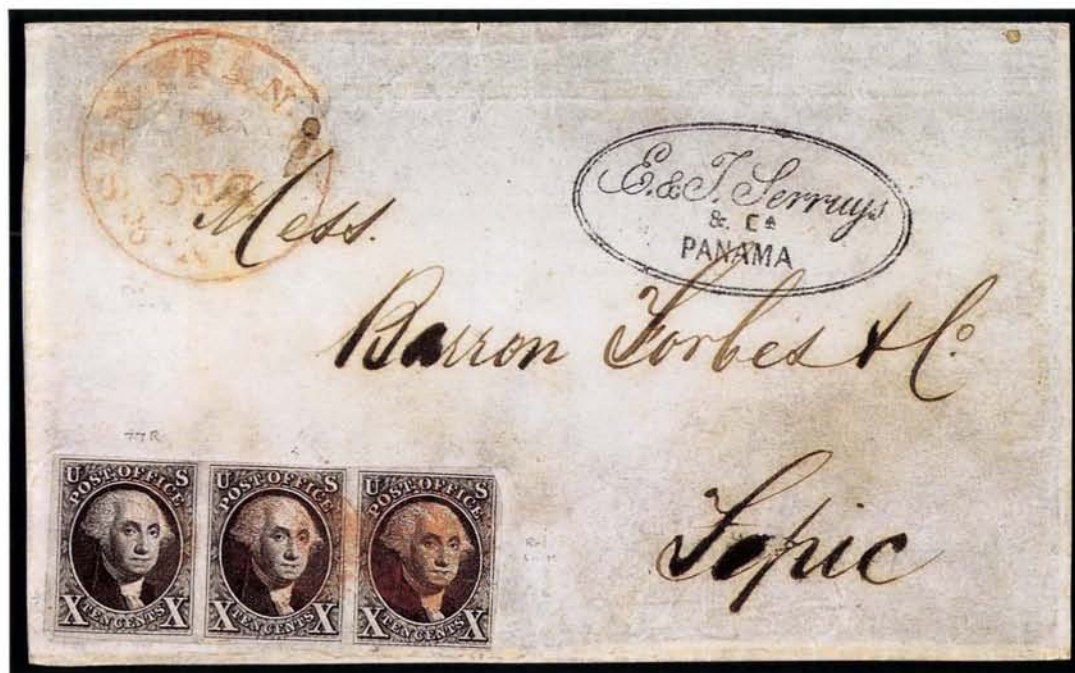 SAN FRAN
DEC
E. & J. Serruys
& Cª
PANAMA
Mess.
Barron Forbes & Co.
Tepic
77R
U S
POST OFFICE
X TEN CENTS X
U S
POST OFFICE
X TEN CENTS X
U S
POST OFFICE
X TEN CENTS X